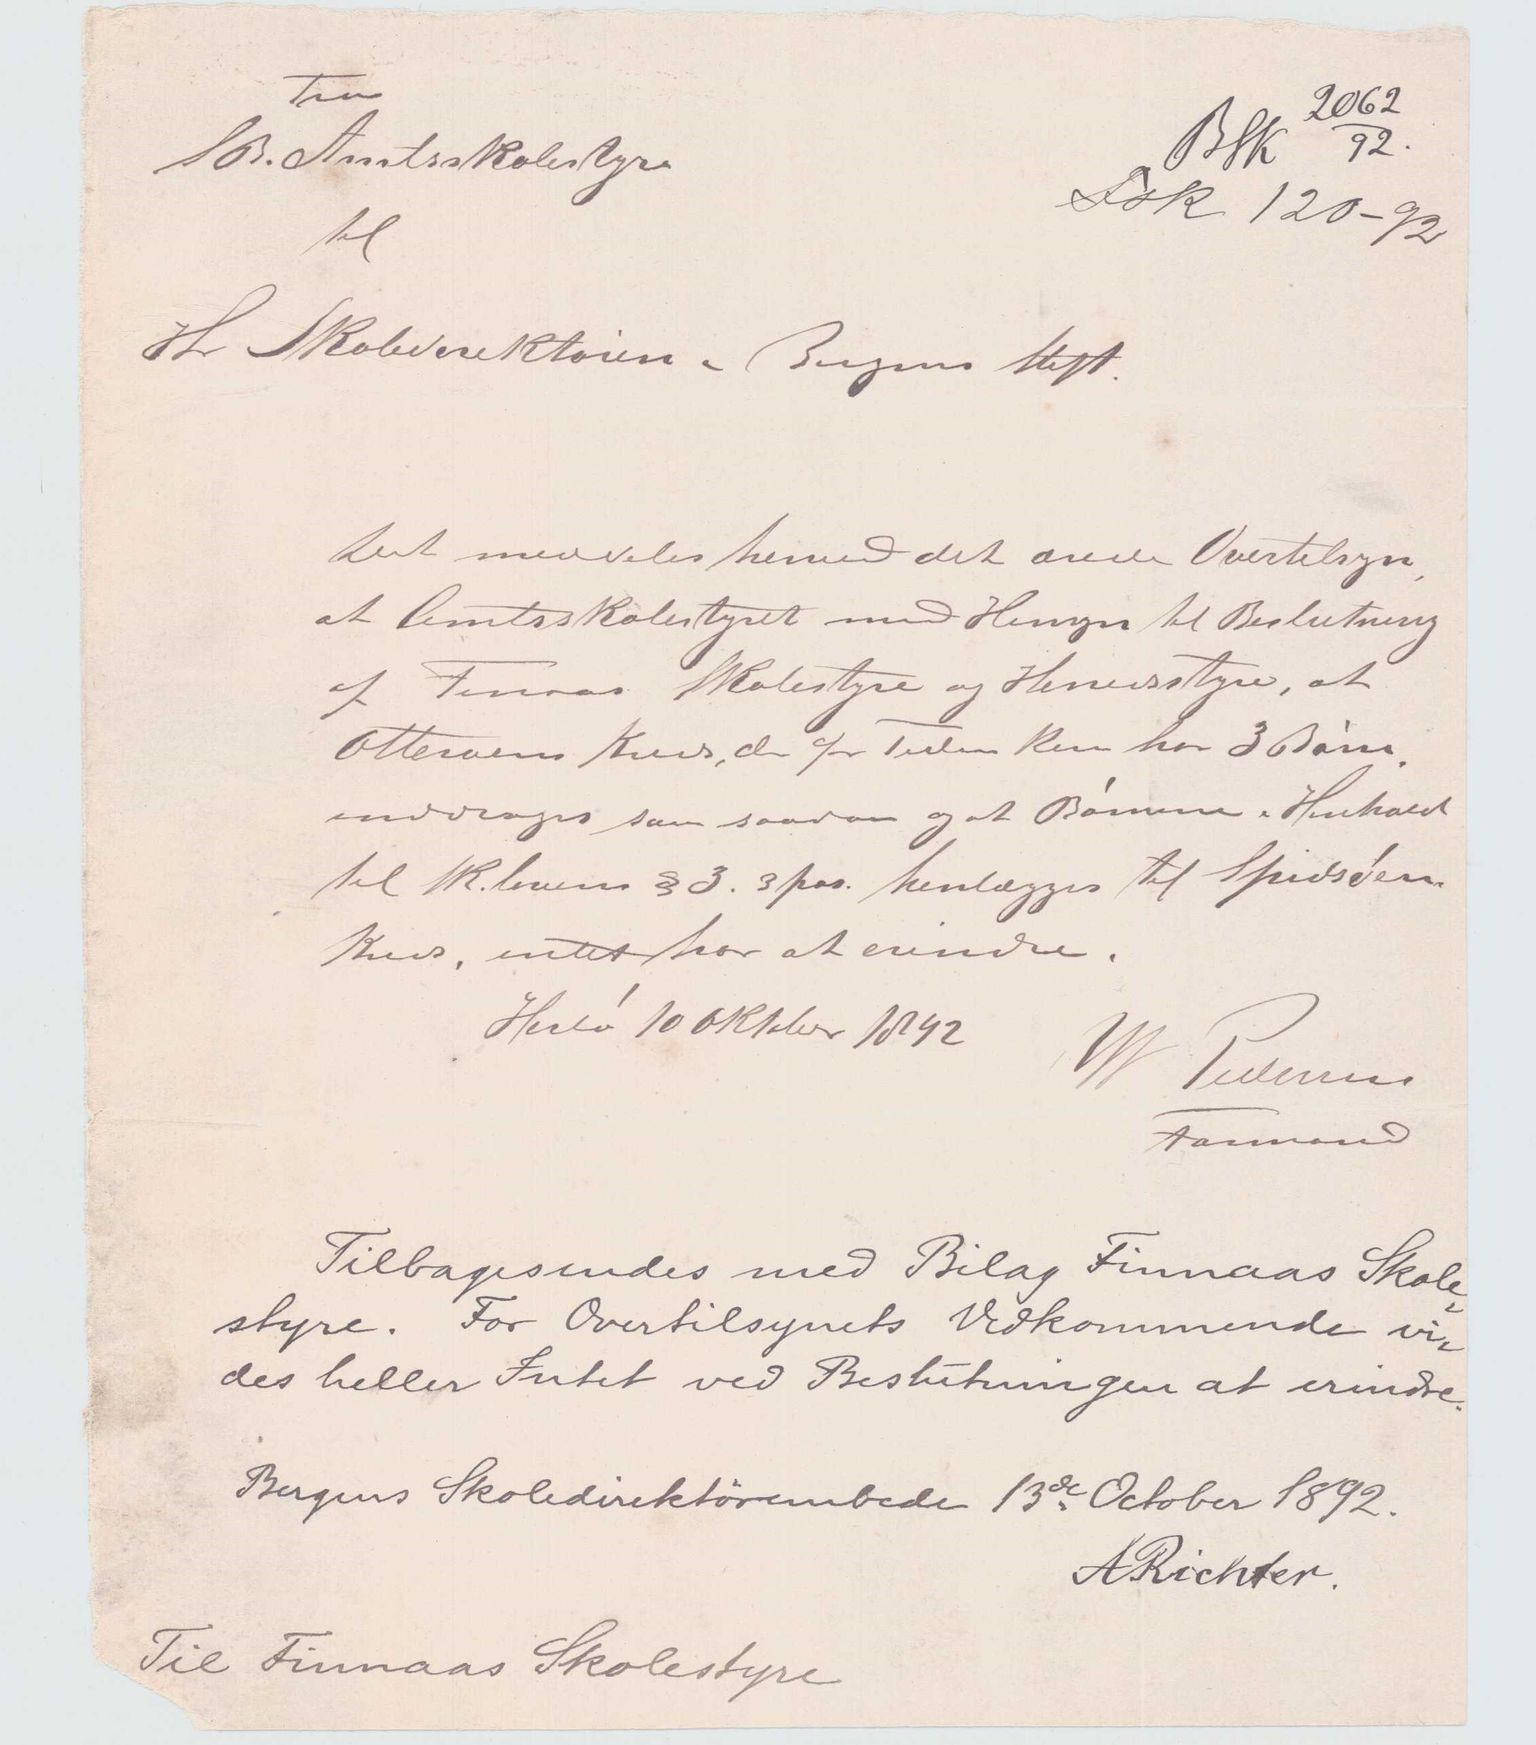 Fra
S.B. Amtsskolestyre
til
Hr Skoledirektøren i Bergens Stift.
BSk 2062/92.
Fsk 120-92
Det meddeles herved det ærede Overtilsyn,
at Amtsskolestyret med Hensyn til Beslutning
af Finnaas Skolestyre og Herredsstyre, at
Otterøens Kreds, der for Tiden kun har 3 Børn,
inddrages som saadan og at Børnene i Henhold
til Sk.lovens § 3. 3 pas. henlægges til Spidsøens
Kreds, intet har at erindre.
Herlø 10 Oktober 1892
W Pedersen
Formand
Tilbagesendes med Bilag Finnaas Skole-
styre. For Overtilsynets Vedkommende vi-
des heller Intet ved Beslutningen at erindre.
Bergens Skoledirektörembede 13de October 1892.
ARichter.
Til Finnaas Skolestyre